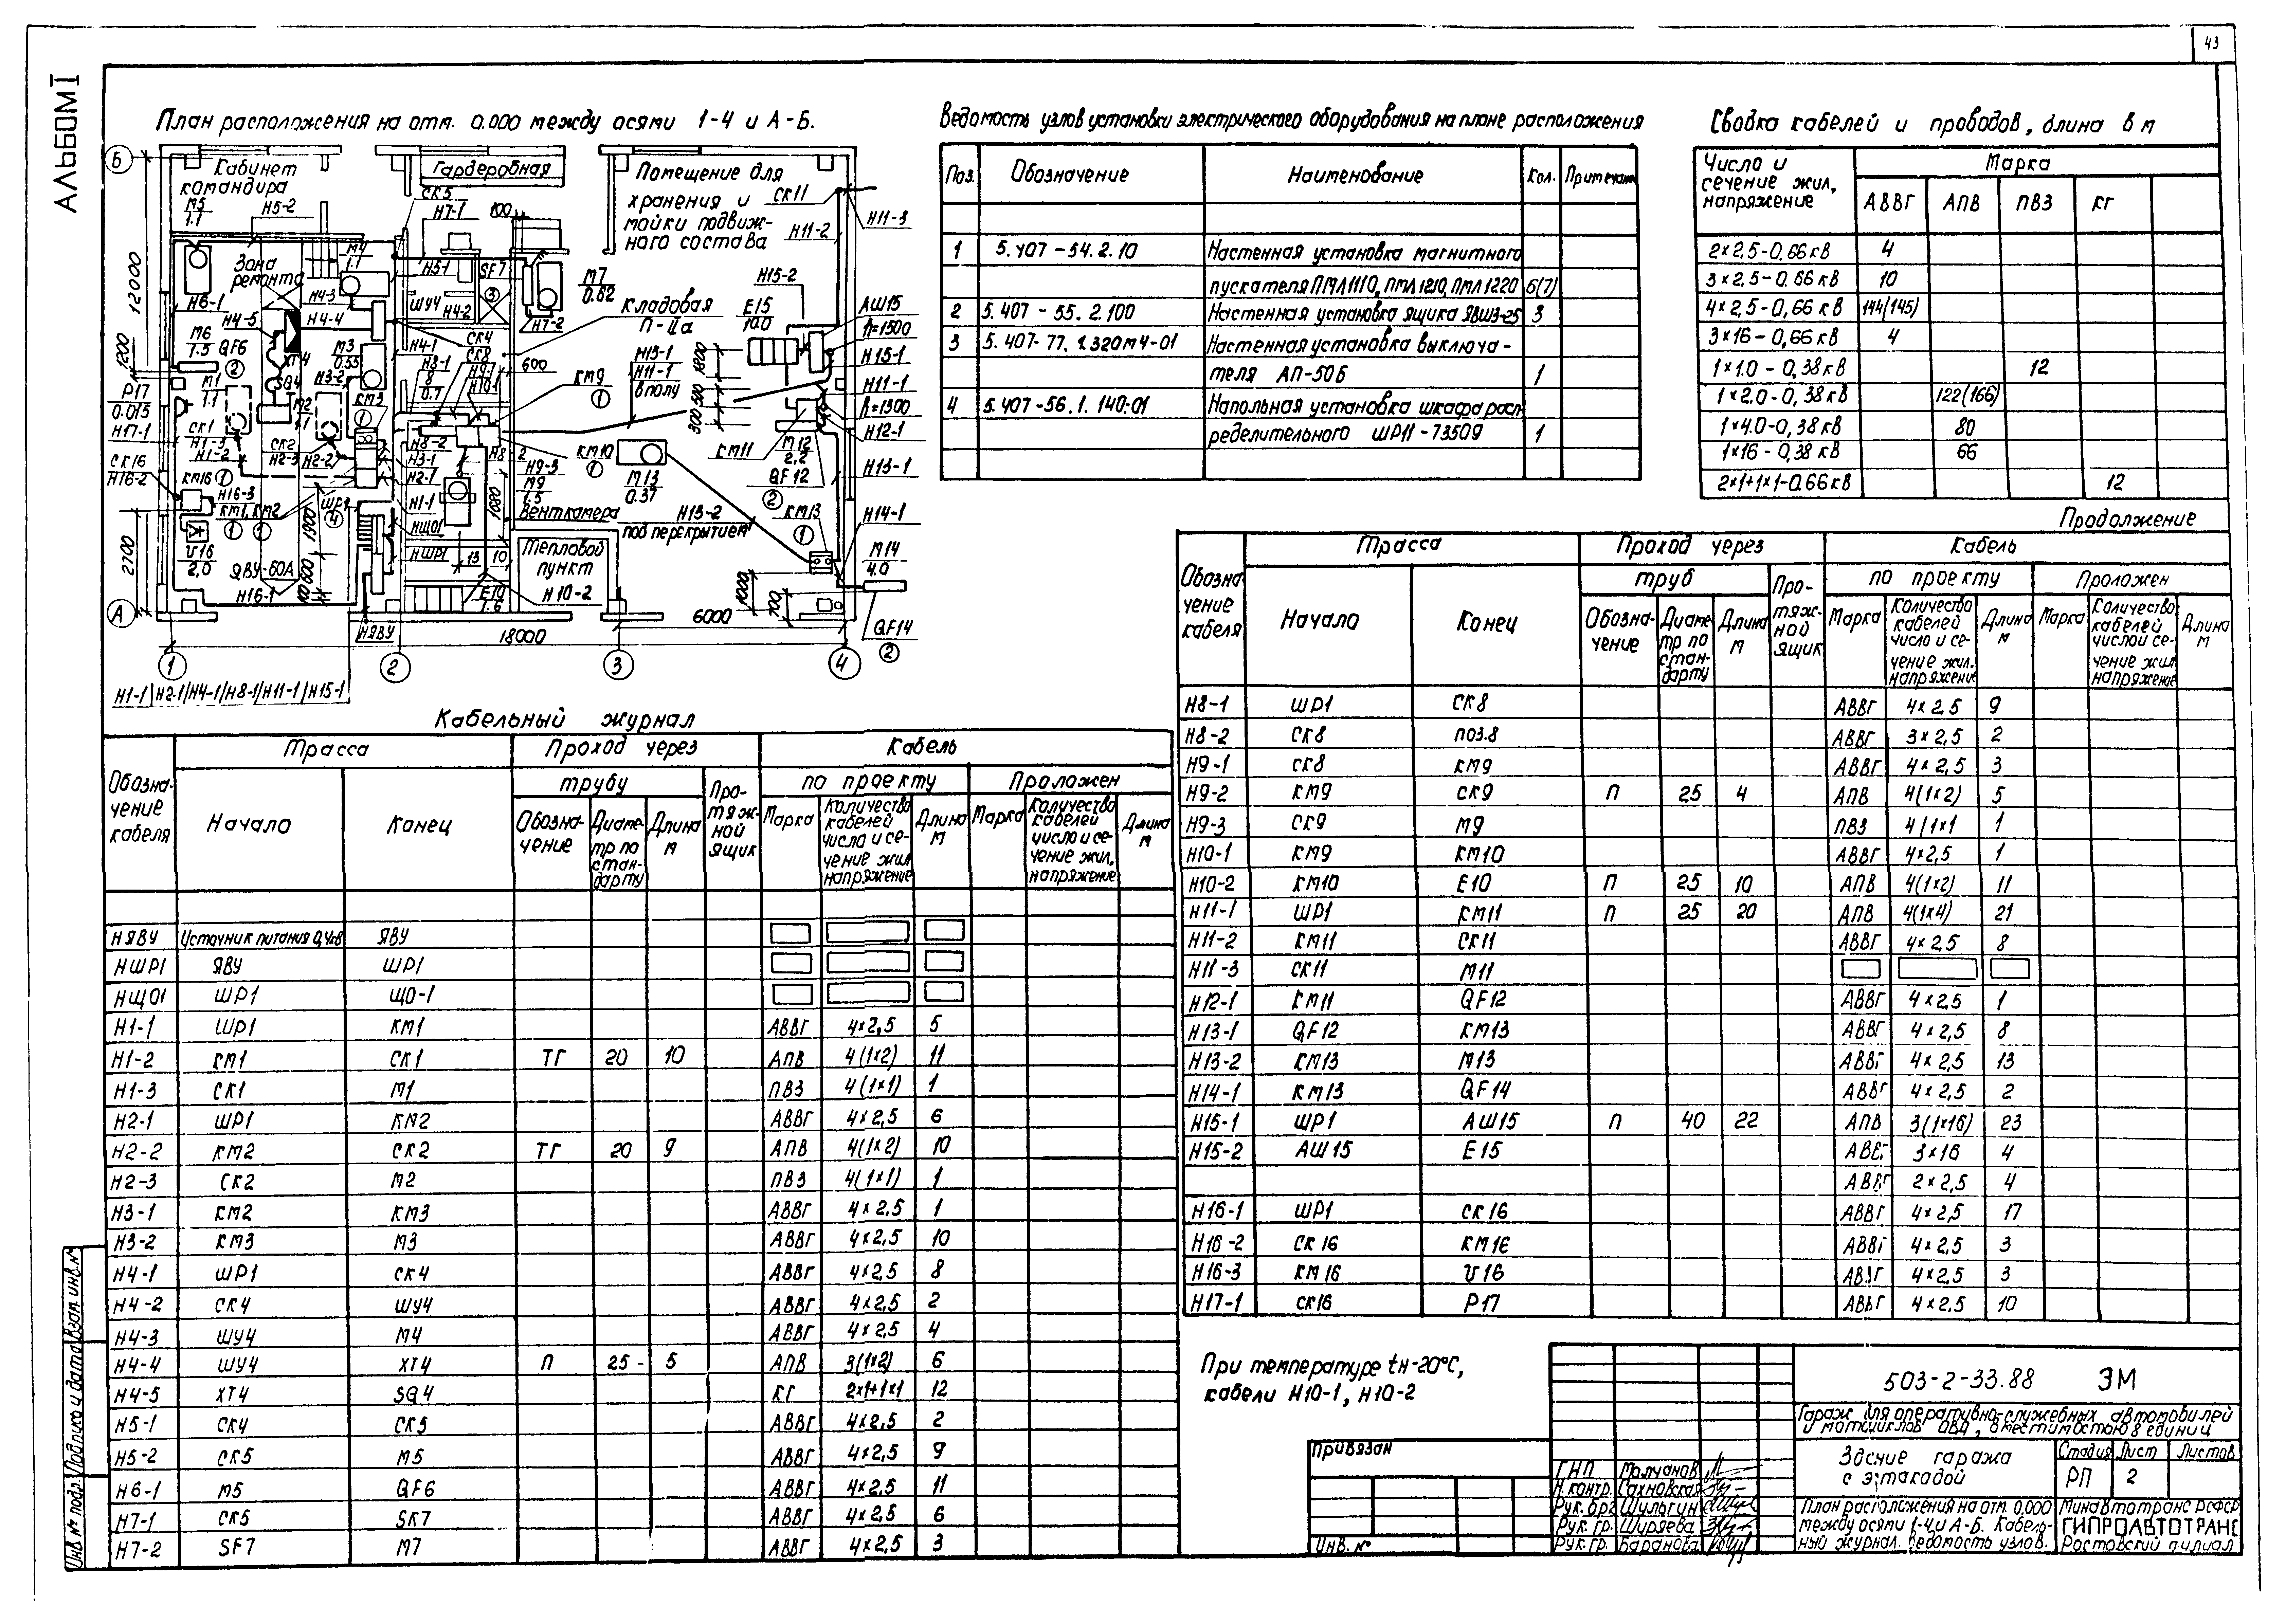 43
АЛЬБОМ I
План расположения на отм. 0.000 между осями 1-4 и А-Б.
Б
Кабинет
командира
М5
1.1
Н5-2
Гардеробная
СК5
Н7-1
100
Помещение для
хранения и
мойки подвиж-
ного состава
СК11
Н11-3
Н11-2
12000
Зона
ремонта
М4
1.1
Н5-1
SF7
М7
0.62
Н15-2
Н6-1
Н4-3
ШУ4
Н4-2
Кладовая
П-IIа
Е15
10.0
АШ15
h=1500
Н4-5
Н4-4
Н7-2
М6
7.5
QF6
ХТ4
М3
0.55
СК4
Н4-1
СК8
Н8-1
Н9-1
Н10-1
600
Н15-1
Н11-1
в полу
КМ9
Н15-1
Н11-1
h=1300
Н12-1
1200
Р17
0.015
Н17-1
М1
1.1
SQ4
М2
1.1
Н3-2
КМ3
8
0.7
СК1
Н1-3
Н1-2
СК2
Н2-3
Н2-2
Н8-2
Н3-1
Н2-1
Н1-1
КМ10
КМ11
М12
2,2
Н13-1
СК16
Н16-2
КМ16
Н16-3
КМ1, КМ2
ШР1
Н9-3
М9
1.5
Венткамера
М13
0.37
QF12
КМ13
Н14-1
V16
2,0
НЩ01
НШР1
Н13-2
под перекрытием
2700
ЯВУ-60А
Н16-1
Тепловой
пункт
Н10-2
Е10
1.6
М14
4.0
А
НЯВУ
18000
6000
QF14
1
2
3
4
Н1-1/Н2-1/Н4-1/Н8-1/Н11-1/Н15-1
Ведомость узлов установки электрического оборудования на плане расположения
Поз. Обозначение Наименование Кол. Примечан
1 5.407-54.2.10 Настенная установка магнитного
пускателя ПМЛ1110, ПМЛ1210, ПМЛ1220 6(7)
2 5.407-55.2.100 Настенная установка ящика ЯВШ3-25 3
3 5.407-77.1.320М4-01 Настенная установка выключа-
теля АП-50Б 1
4 5.407-56.1.140-01 Напольная установка шкафа расп-
ределительного ШР11-73509 1
Сводка кабелей и проводов, длина в м
Число и
сечение жил,
напряжение
Марка
АВВГ АПВ ПВ3 КГ
2×2,5-0,66 кВ 4
3×2,5-0.66 кВ 10
4×2,5-0,66 кВ 144(145)
3×16-0,66 кВ 4
1×1.0-0,38 кВ 12
1×2.0-0,38 кВ 122(166)
1×4.0-0,38 кВ 80
1×16-0,38 кВ 66
2×1+1×1-0.66 кВ 12
Кабельный журнал
Обозна-
чение
кабеля
Трасса Проход через Кабель
трубу Про-
тяж-
ной
ящик
по проекту Проложен
Начало Конец
Обозна-
чение
Диаме-
тр по
стан-
дарту
Длина
м
Марка
Количество
кабелей
число и се-
чение жил
напряжение
Длина
м
Марка
Количество
кабелей
число и се-
чение жил,
напряжение
Длина
м
НЯВУ Источник питания 0,4кв ЯВУ
НШР1 ЯВУ ШР1
НЩ01 ШР1 ЩО-1
Н1-1 ШР1 КМ1 АВВГ 4×2,5 5
Н1-2 КМ1 СК1 ТГ 20 10 АПВ 4(1×2) 11
Н1-3 СК1 М1 ПВ3 4(1×1) 1
Н2-1 ШР1 КМ2 АВВГ 4×2,5 6
Н2-2 КМ2 СК2 ТГ 20 9 АПВ 4(1×2) 10
Н2-3 СК2 М2 ПВ3 4(1×1) 1
Н3-1 КМ2 КМ3 АВВГ 4×2.5 1
Н3-2 КМ3 М3 АВВГ 4×2,5 10
Н4-1 ШР1 СК4 АВВГ 4×2,5 8
Н4-2 СК4 ШУ4 АВВГ 4×2,5 2
Н4-3 ШУ4 М4 АВВГ 4×2,5 4
Н4-4 ШУ4 ХТ4 П 25 - 5 АПВ 3(1×2) 6
Н4-5 ХТ4 SQ4 КГ 2×1+1×1 12
Н5-1 СК4 СК5 АВВГ 4×2,5 2
Н5-2 СК5 М5 АВВГ 4×2,5 9
Н6-1 М5 QF6 АВВГ 4×2,5 11
Н7-1 СК5 SК7 АВВГ 4×2,5 6
Н7-2 SF7 М7 АВВГ 4×2,5 3
Продолжение
Обозна-
чение
кабеля
Трасса Проход через Кабель
труб Про-
тяж-
ной
ящик
по проекту Проложен
Начало Конец
Обозна-
чение
Диаме-
тр по
стан-
дарту
Длина
м
Марка
Количество
кабелей
число и се-
чение жил.
напряжение
Длина
м
Марка
Количество
кабелей
число и се-
чение жил
напряжение
Длина
м
Н8-1 ШР1 СК8 АВВГ 4×2,5 9
Н8-2 СК8 поз.8 АВВГ 3×2,5 2
Н9-1 СК8 КМ9 АВВГ 4×2,5 3
Н9-2 КМ9 СК9 П 25 4 АПВ 4(1×2) 5
Н9-3 СК9 М9 ПВ3 4(1×1 1
Н10-1 КМ9 КМ10 АВВГ 4×2,5 1
Н10-2 КМ10 Е10 П 25 10 АПВ 4(1×2) 11
Н11-1 ШР1 КМ11 П 25 20 АПВ 4(1×4) 21
Н11-2 КМ11 СК11 АВВГ 4×2.5 8
Н11-3 СК11 М11
Н12-1 КМ11 QF12 АВВГ 4×2,5 1
Н13-1 QF12 КМ13 АВВГ 4×2,5 8
Н13-2 КМ13 М13 АВВГ 4×2,5 13
Н14-1 КМ13 QF14 АВВГ 4×2.5 2
Н15-1 ШР1 АШ15 П 40 22 АПВ 3(1×16) 23
Н15-2 АШ15 Е15 АВВГ 3×16 4
АВВГ 2×2,5 4
Н16-1 ШР1 СК16 АВВГ 4×2,5 17
Н16-2 СК16 КМ16 АВВГ 4×2,5 3
Н16-3 КМ16 V16 АВВГ 4×2,5 3
Н17-1 СК16 Р17 АВВГ 4×2,5 10
При температуре tн-20°С,
кабели Н10-1, Н10-2
Привязан
Инв. №
503-2-33.88 ЭМ
Гараж для оперативно-служебных автомобилей
и мотоциклов ОВД, вместимостью 8 единиц
Здание гаража
с эстакадой
Стадия Лист Листов
РП 2
ГИП Молчанов
Н.контр. Сахновская
Рук.бр. Шульгин
Рук.гр. Ширяева
Рук.гр. Баранова
План расположения на отм. 0,000
между осями 1-4 и А-Б. Кабель-
ный журнал. Ведомость узлов.
Минавтотранс РСФСР
ГИПРОАВТОТРАНС
Ростовский филиал
Инв № подл.
Подпись и дата
Взам. инв. №